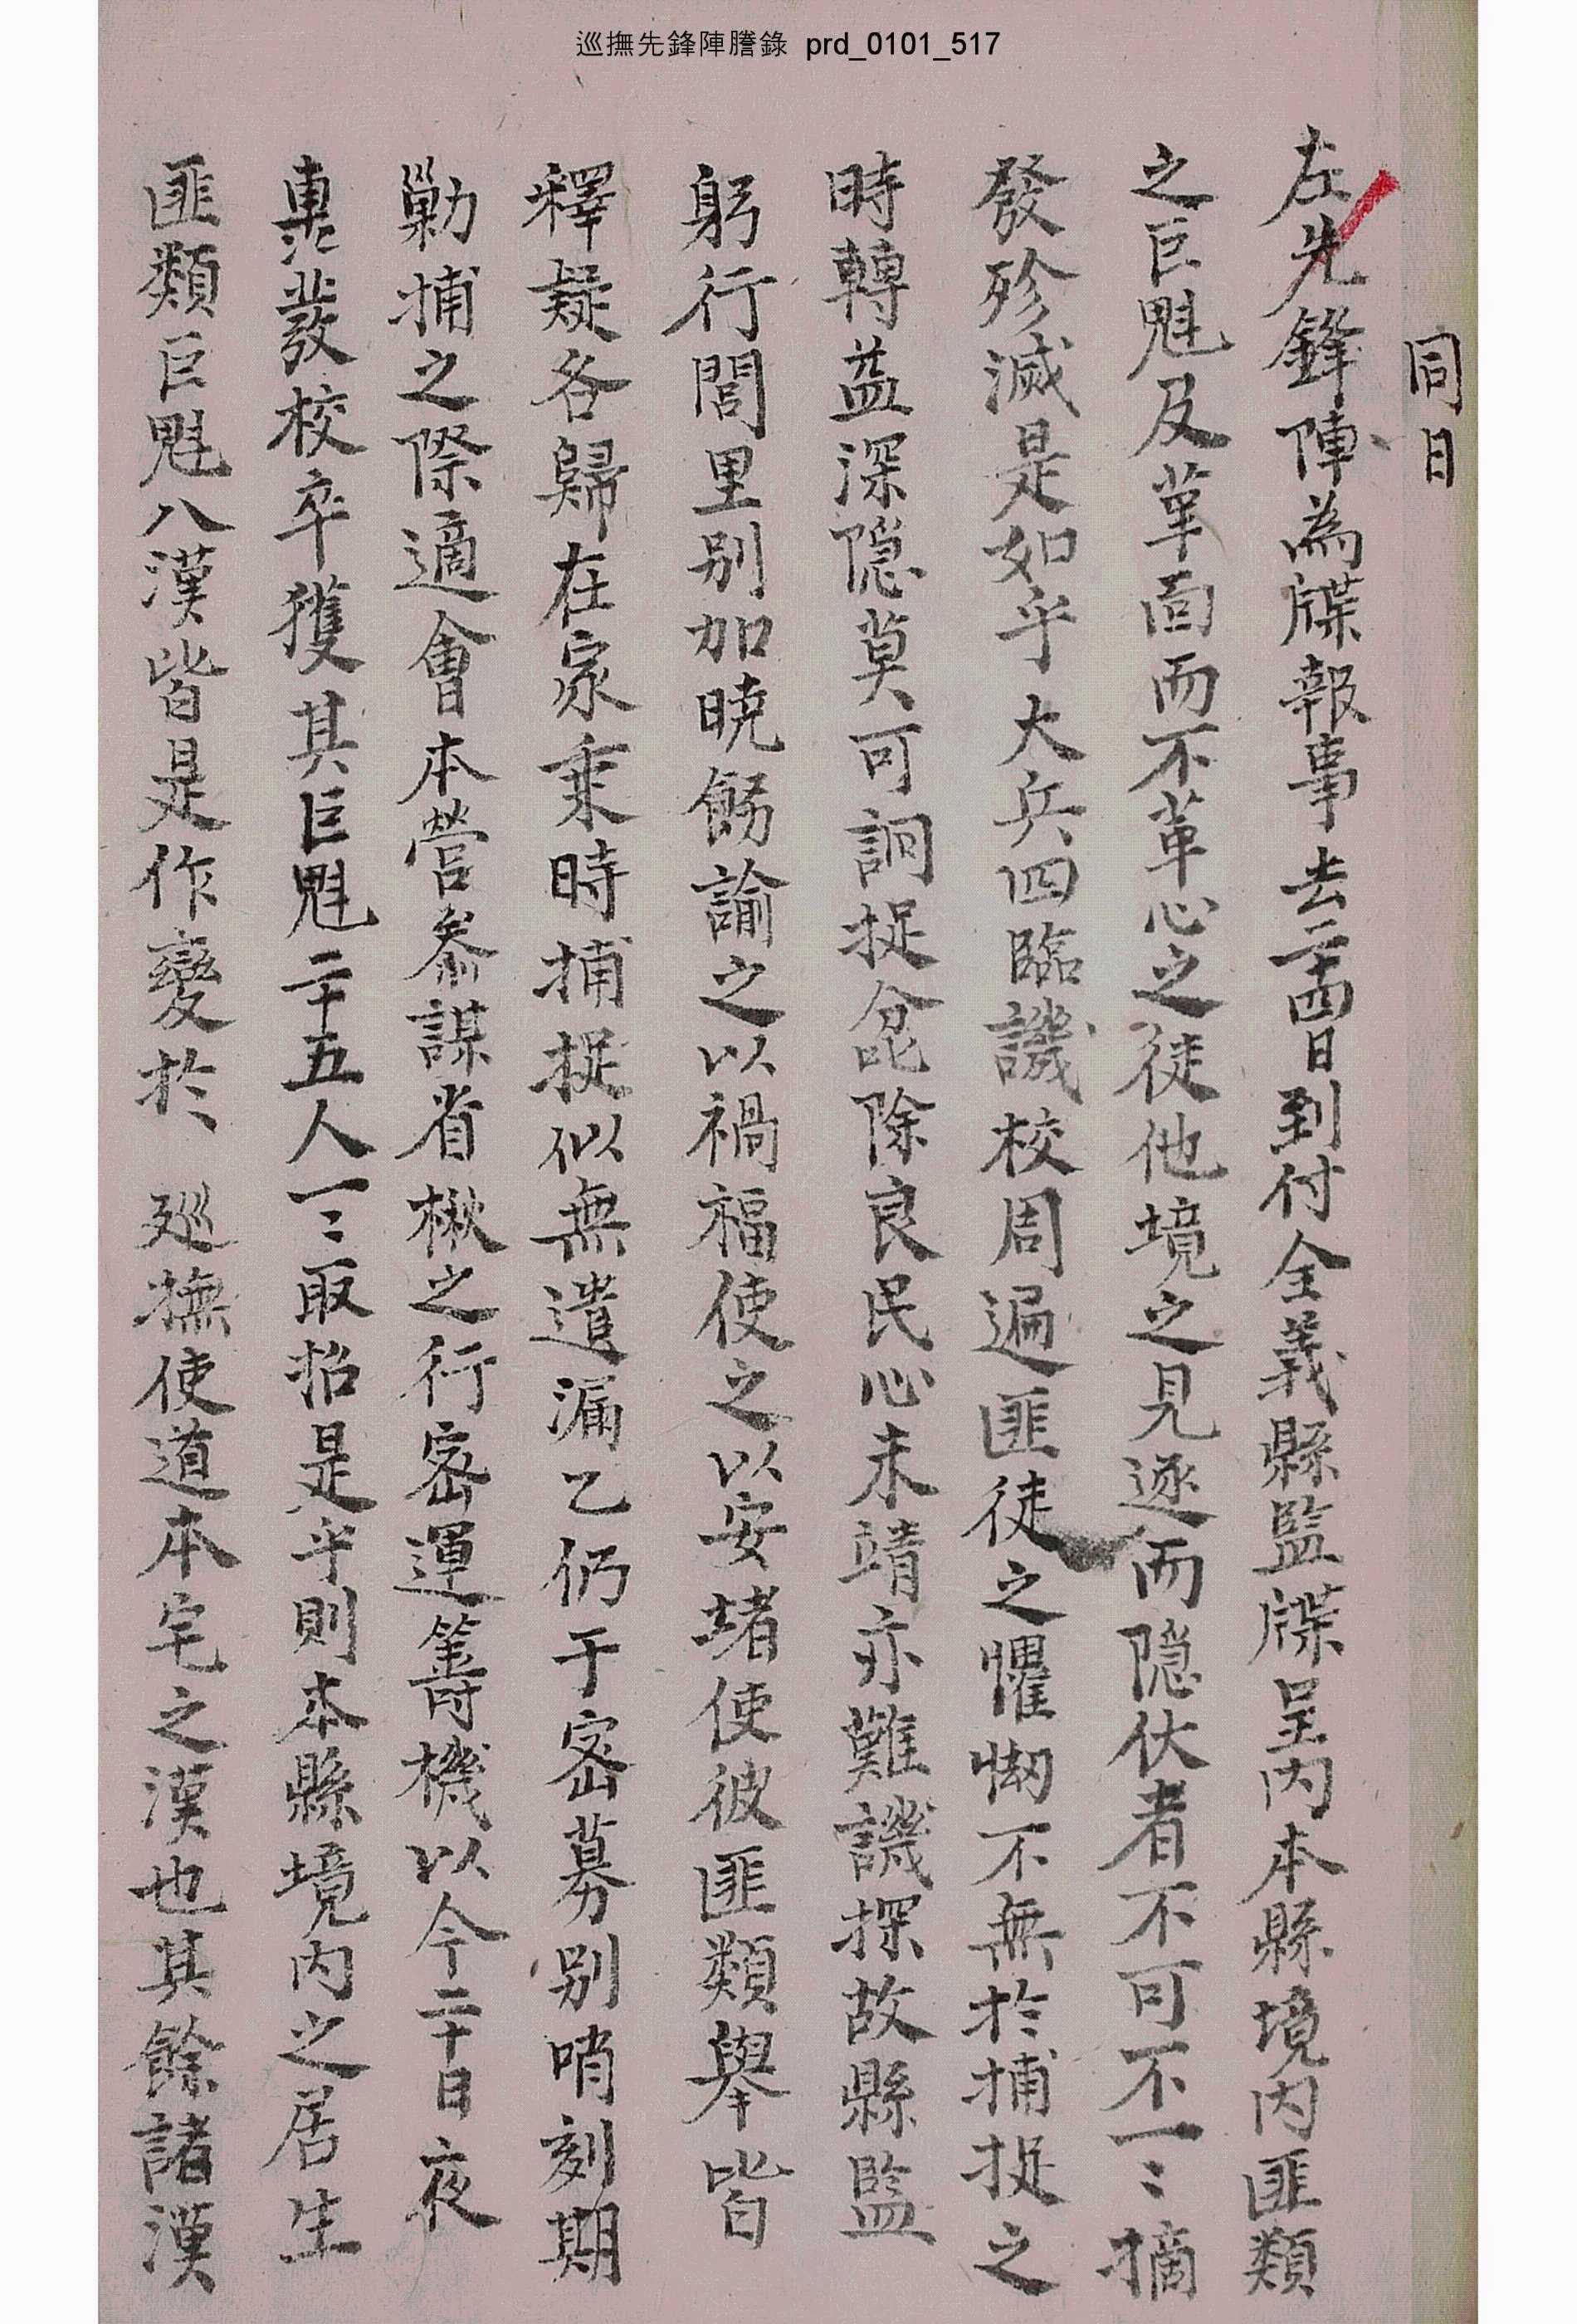 巡撫先鋒陣謄錄 prd_0101_517
同日
左先鋒陣爲牒報事去二十四日到付全義縣監牒呈內本縣境內匪類
之巨魁及革面而不革心之徒他境之見逐而隱伏者不可不一〻摘
發殄滅是如乎大兵四臨譏校周遍匪徒之懼㤼不無於捕捉之
時轉益深隱莫可詗捉兺除良民心未靖亦難譏探故縣監
躬行閭里別加曉飭諭之以禍福使之以安堵使彼匪類擧皆
釋疑各歸在家乘時捕捉似無遺漏乙仍于密募別哨刻期
勦捕之際適會本營參謀省楸之行密運籌機以今二十日夜
黑發校卒獲其巨魁二十五人一〻取招是乎則本縣境內之居生
匪類巨魁八漢皆是作變於 廵撫使道本宅之漢也其餘諸漢